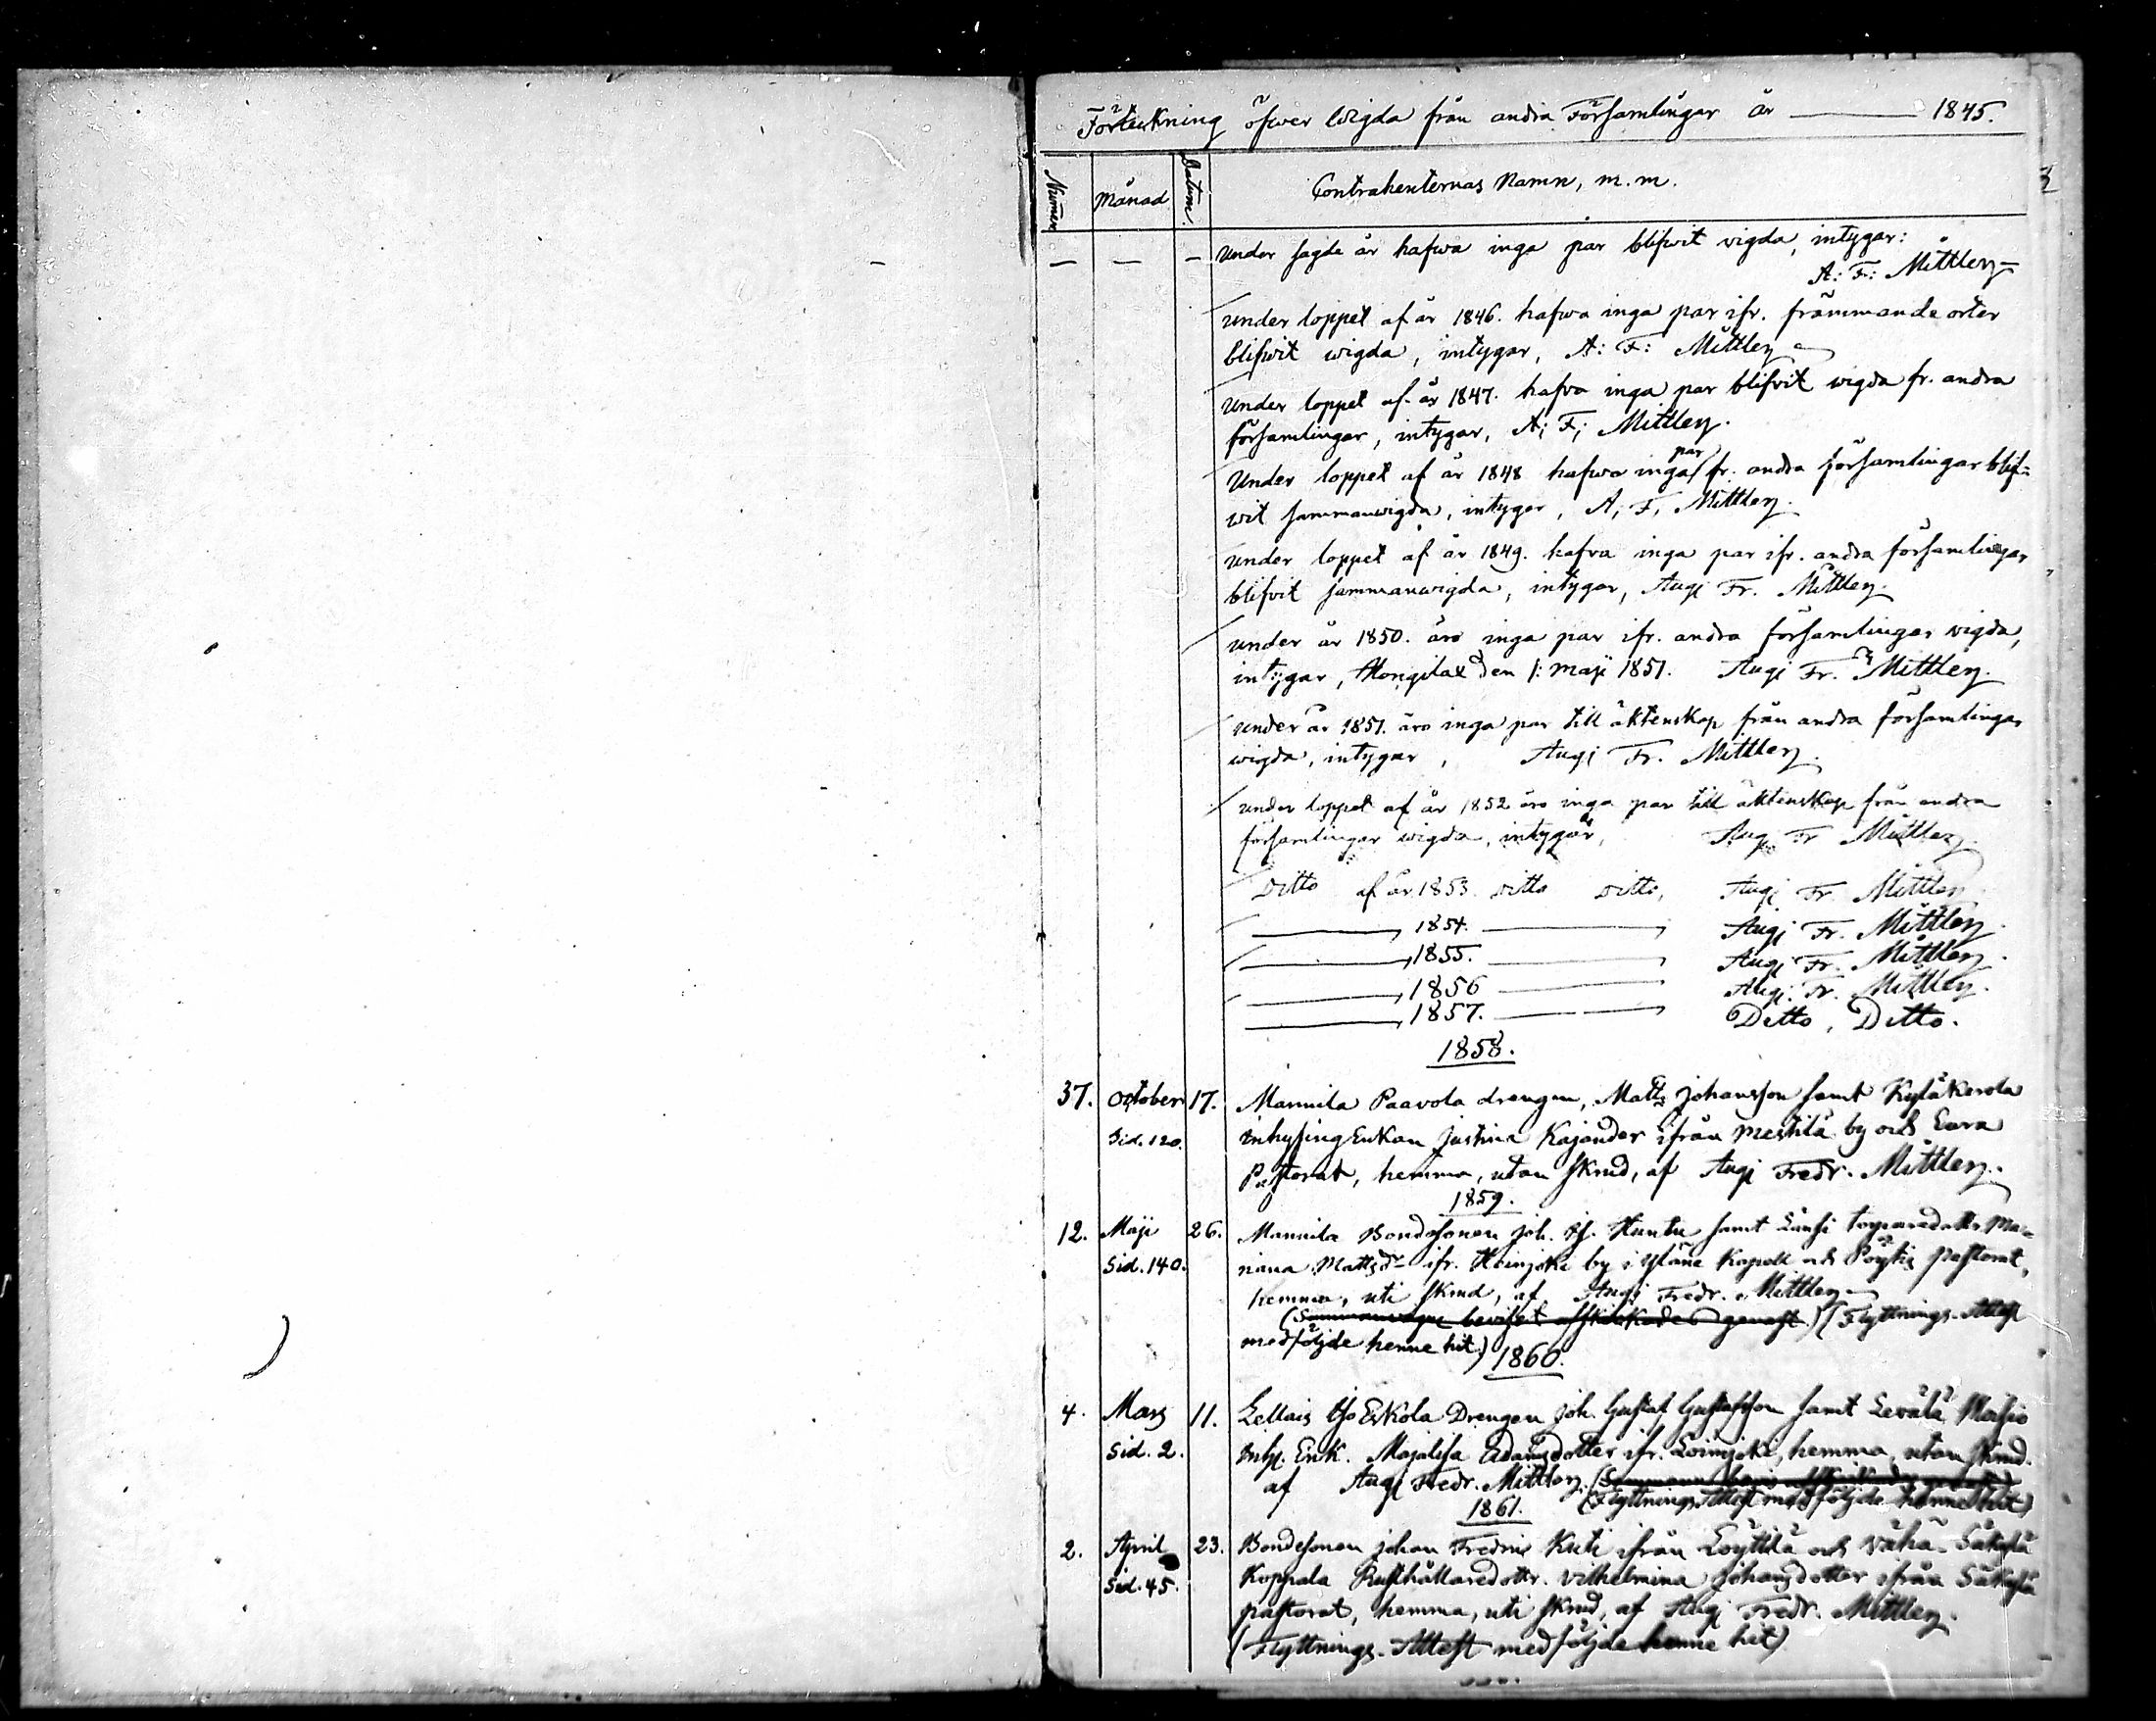 Förteckning öfwer Wigda från andra Församlingar år — 1845.
Numer Månad Datum. Contrahenternas Namn, m.m.
— — — Under sagde år hafwa inga par blifwit vigda, intygar:
A: F: Mittler
Under loppet af år 1846. hafwa inga par ifr. främmande orter
blifwit wigda, intygar, A: F: Mittler
Under loppet af år 1847. hafva inga par blifvit wigda fr. andra
församlingar, intygar, A; F; Mittler.
Under loppet af år 1848 hafwa inga par fr. andra församlingar blif=
wit sammanwigda, intygar, A; F; Mittler.
Under loppet af år 1849. hafva inga par ifr. andra församlingar
blifvit sammanwigda, intygar, Aug; Fr. Mittler.
Under år 1850. äro inga par ifr. andra församlingar wigda,
intygar, Hongilax den 1: Maji 1851. Aug; Fr. Mittler.
Under år 1851. äro inga par till äktenskap från andra församlingar
wigda, intygar, Aug; Fr. Mittler.
Under loppet af år 1852 äro inga par till äktenskap från andra
församlingar wigda, intygar, Aug. Fr Mittler.
Ditto af år 1853. ditto ditto, Aug; Fr. Mittler
—, 1854. —, Aug; Fr. Mittler.
—, 1855. —, Aug; Fr. Mittler.
—, 1856 —, Aug; Fr. Mittler.
—, 1857. —, Ditto, Ditto.
1858.
37. October 17. Mannila Paavola drengen, Matts Johansson samt Kyläkerola
Sid. 120. Inhysing Enkan Justina Kajander ifrån Mestilä by och Eura
Pastorat, hemma, utan skrud, af Aug; Fredr. Mittler.
1859.
12. Maji 26. Mannila Bondesonen Joh. Huntu samt Länsi torparedottr Ma=
Sid. 140. riana Mattsdr ifr. Heinjoki by i Yläne Kapell och Pöytis pastorat,
hemma, uti skrud, af Aug; Fredr. Mittler
(Flyttnings-Attest
medföljde henne hit.) 1860.
4. Mars 11. Lellais Yso Eskola Drengen Joh. Gustaf Gustafsson samt Levälä
Sid. 2. Inh. Enk. Majalisa Adamsdotter ifr. hemma, utan skrud.
af Aug; Fredr. Mittler.
1861. (Flyttnings Attest medföljde henne hit)
2. April 23. Bondesonen Johan Fredric Kuti ifrån Löyttilä och Vähä-Säkylä
Sid. 45. Koppala Rusthållaredottr. Vilhelmina Johansdotter ifrån Säkylä
pastorat, hemma, uti skrud, af Aug; Fredr. Mittler.
(Flyttnings-Attest medföljde henne hit)